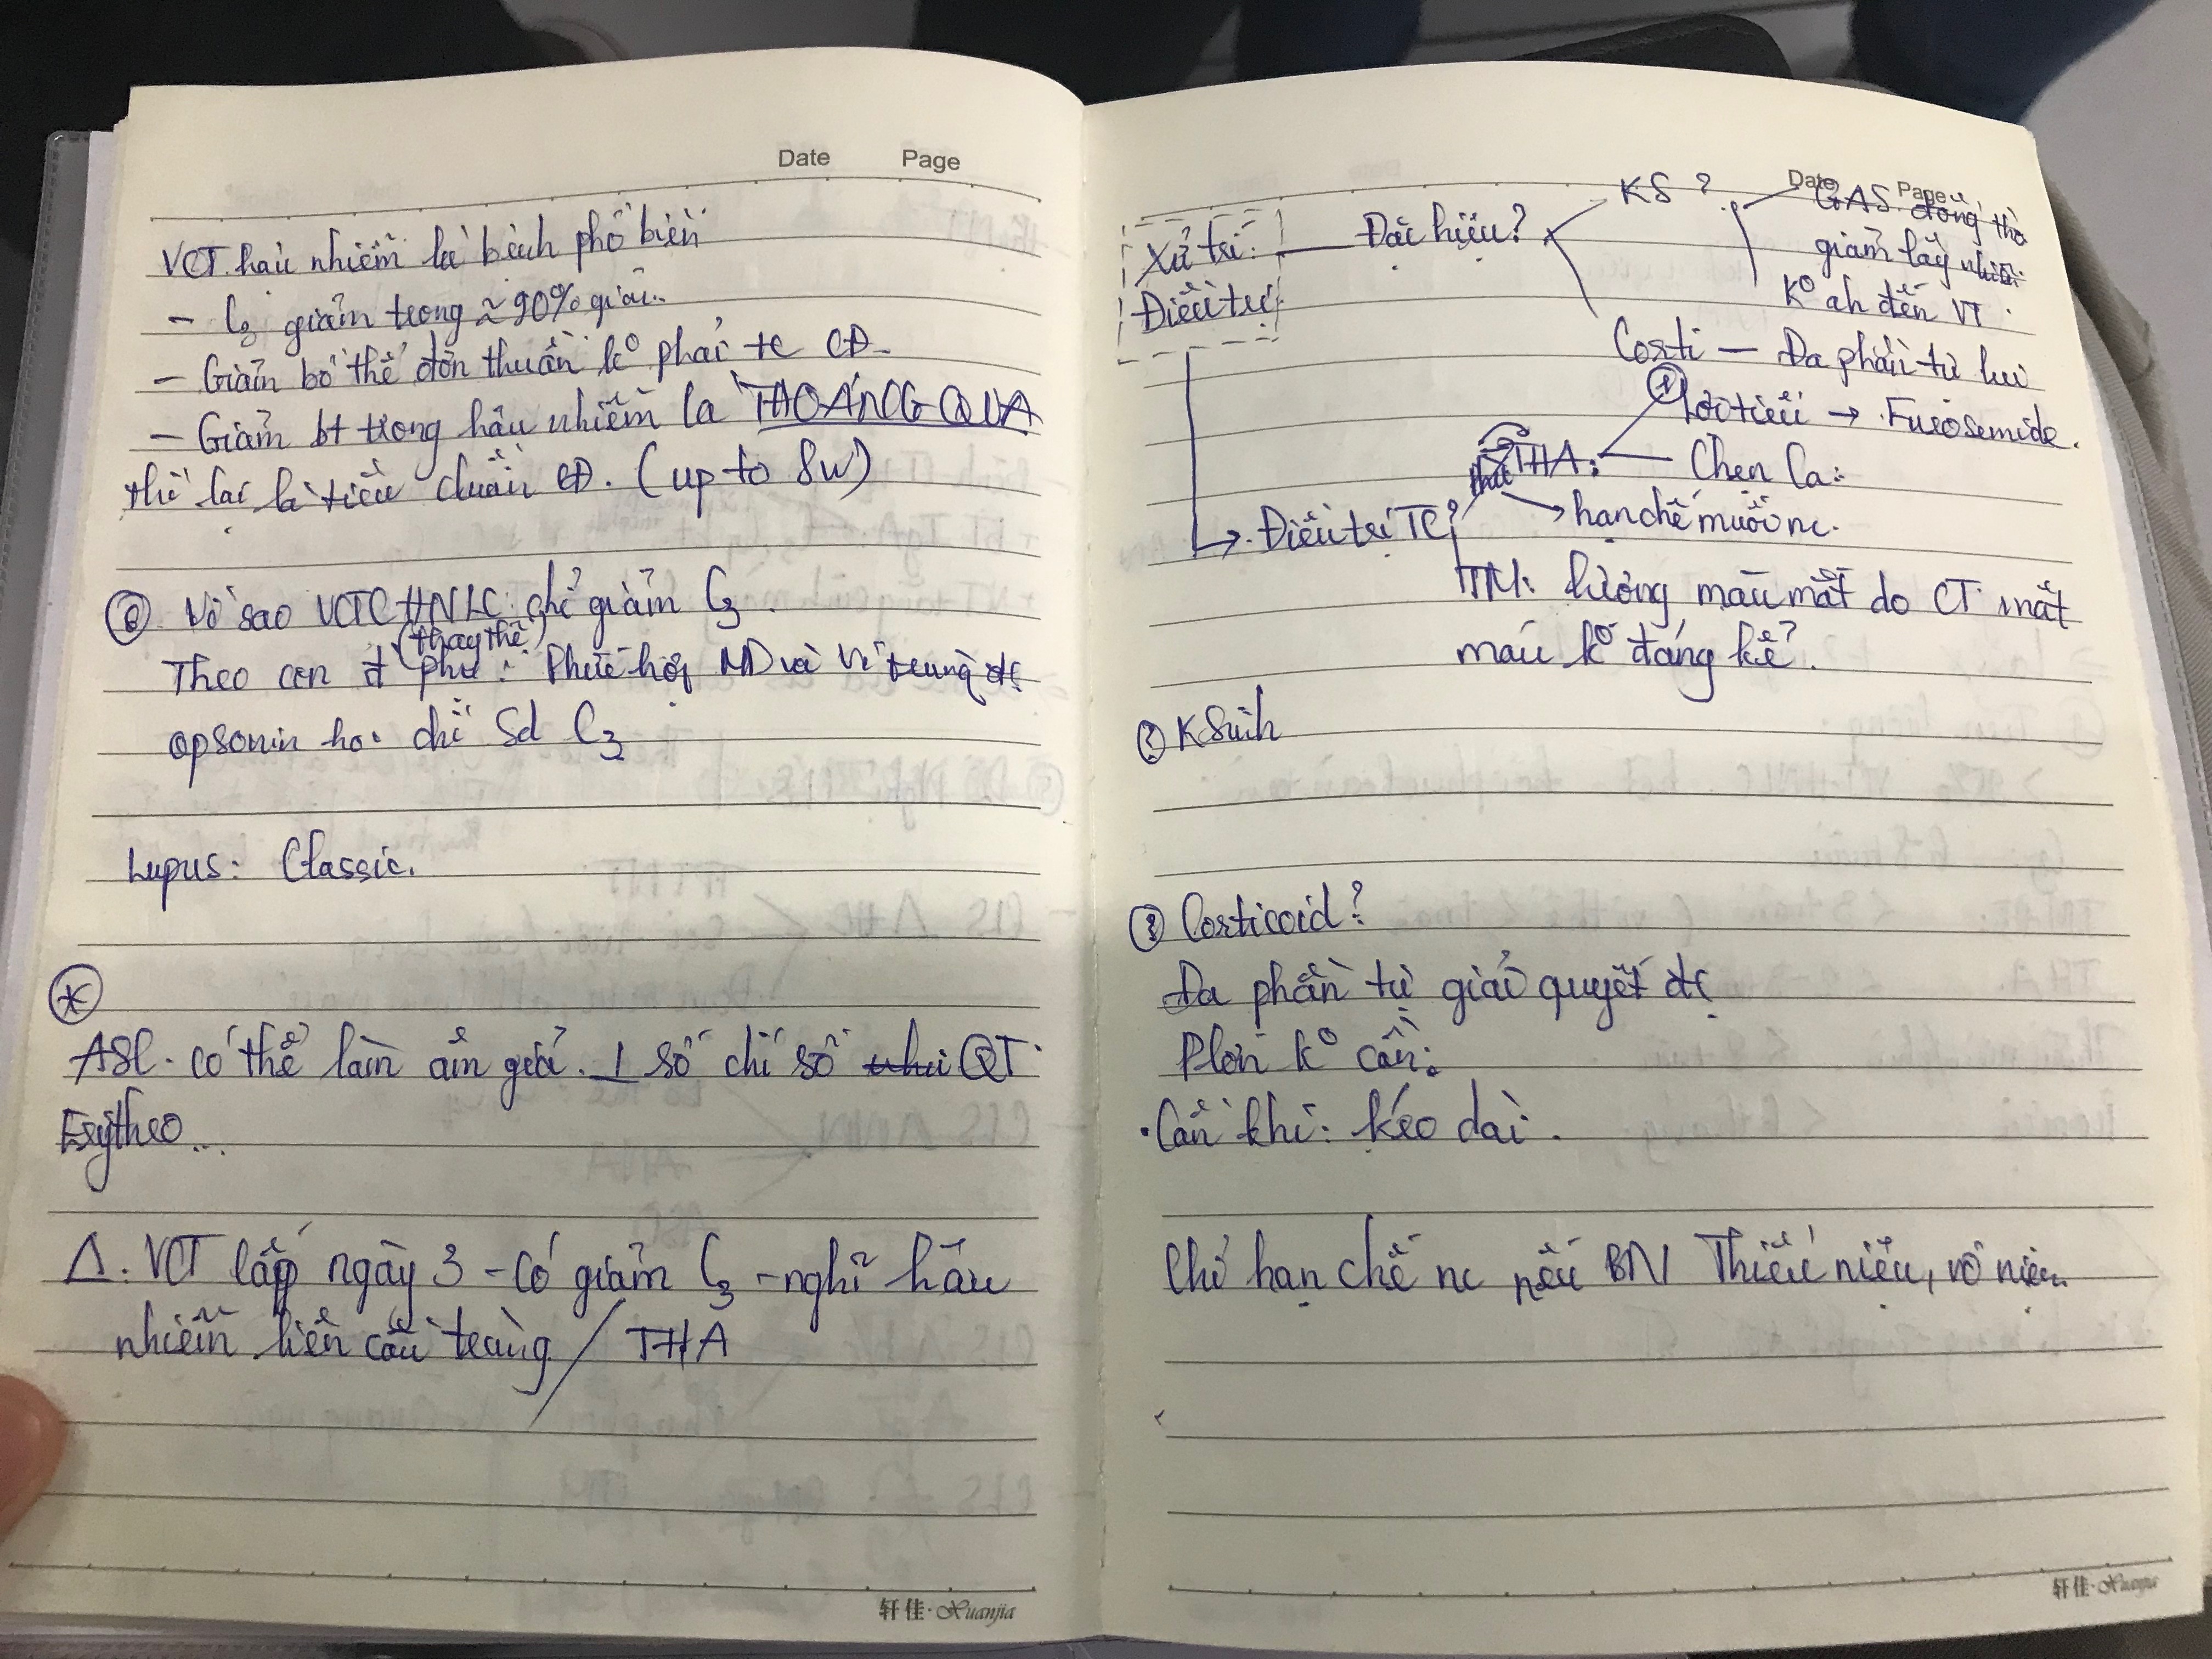 Date Page
VCT hậu nhiễm là bệnh phổ biến
- C3 giảm trong ≈ 90% giai.
- Giảm bổ thể đơn thuần k° phải tc CĐ.
- Giảm bt trong hậu nhiễm là THOÁNG QUA
thì lại là tiêu chuẩn CĐ. (up to 8w)
Vì sao VCTCHNLC chỉ giảm C3.
(thay thế)
Theo con đ phụ: Phức hợp MD và Vi trùng đc
opsonin hoá chỉ sd C3
Lupus: Classic.
*
ASL. có thể làm âm giả. 1 số chỉ số QT
Erythro...
Δ. VCT cấp ngày 3 - có giảm C3 - nghĩ hậu
nhiễm liên cầu trùng / THA
轩佳·Xuanjia
Date Page
Xử trí:
Điều trị
Đặc hiệu?
KS?
GAS đồng thờ
giảm lây nhiễm
K° ah đến VT.
Corti - Đa phần tự lui
Lợi tiểu → Furosemide.
THA:
Chẹn Ca:
hạn chế muối nc.
→ Điều trị TC?
TM: lượng máu mất do CT mất
máu k° đáng kể?
? K Sinh
? Corticoid?
Đa phần tự giải quyết đc
Plon k° cần:
. Cần khi: kéo dài.
Chỉ hạn chế nc nếu BN Thiểu niệu, vô niệu.
轩佳·Xuanjia